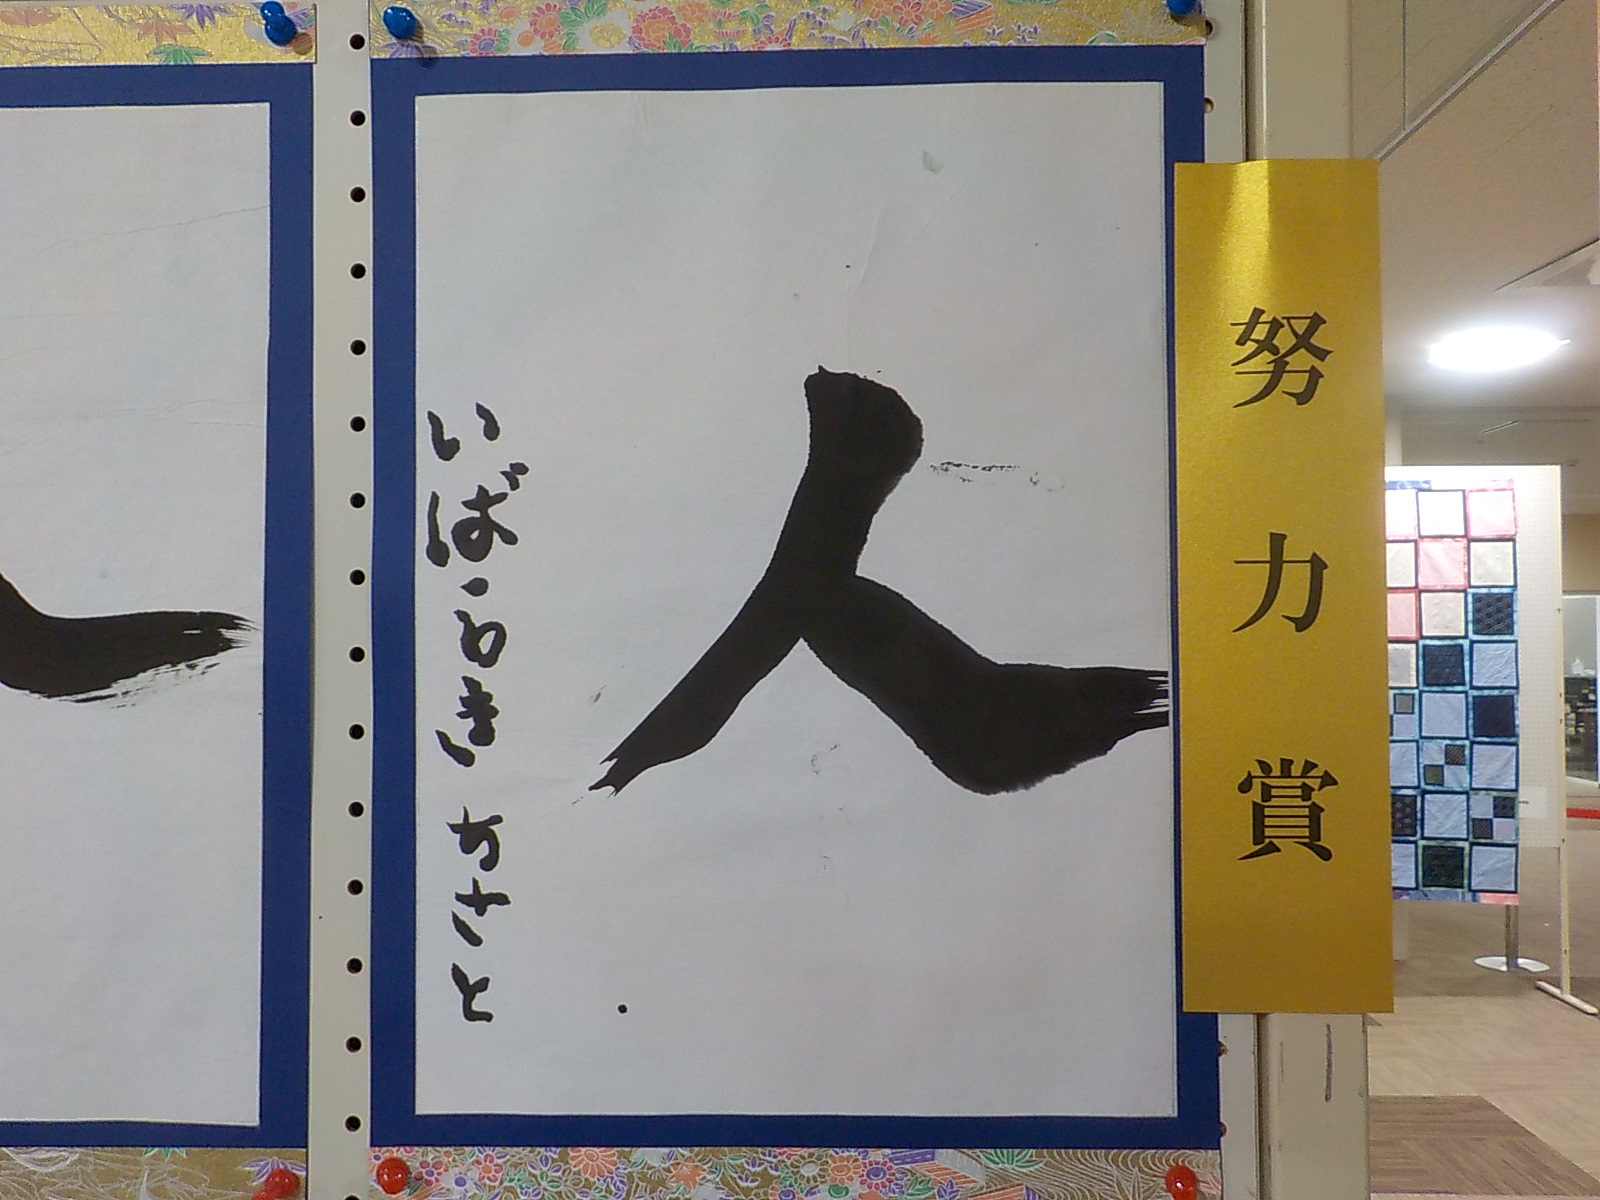 努力賞
人
いばらき ちさと